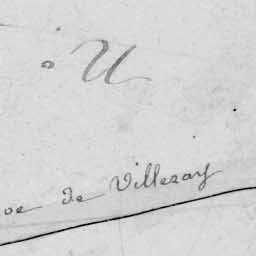 U
oe de Villeray